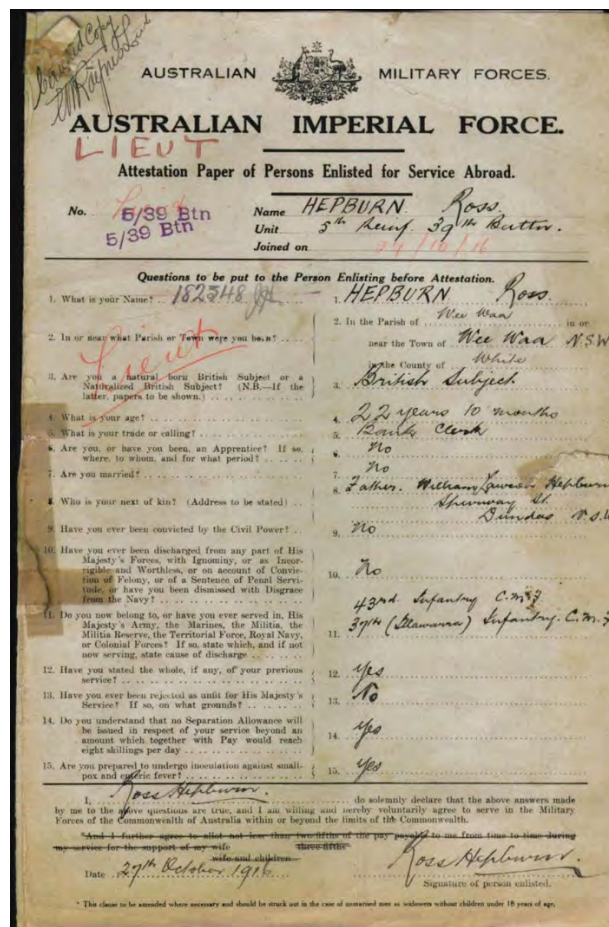 Certified Copy
AUSTRALIAN MILITARY FORCES.
AUSTRALIAN IMPERIAL FORCE.
LIEUT
Attestation Paper of Persons Enlisted for Service Abroad.
No. 5/39 Btn
5/39 Btn
Name HEPBURN Ross.
Unit 5th Reinf. 39th Battn.
Joined on 24/10/16
Questions to be put to the Person Enlisting before Attestation.
1. What is your Name? 1. HEPBURN Ross.
2. In or near what Parish or Town were you born? 2. In the Parish of Wee Waa in or
near the Town of Wee Waa N.S.W
in the County of White
Lieut
3. Are you a natural born British Subject or a
Naturalized British Subject? (N.B.—If the
latter, papers to be shown.) 3. British Subject
4. What is your age? 4. 22 years 10 months
5. What is your trade or calling? 5. Bank Clerk
6. Are you, or have you been, an Apprentice? If so,
where, to whom, and for what period? 6. No
7. Are you married? 7. No
8. Who is your next of kin? (Address to be stated) 8. Father. William Hepburn
St.
Dundas N.S.W
9. Have you ever been convicted by the Civil Power? 9. No
10. Have you ever been discharged from any part of His
Majesty's Forces, with Ignominy, or as Incor-
rigible and Worthless, or on account of Convic-
tion of Felony, or of a Sentence of Penal Servi-
tude, or have you been Dismissed with Disgrace
from the Navy? 10. No
11. Do you now belong to, or have you ever served in, His
Majesty's Army, the Marines, the Militia, the
Militia Reserve, the Territorial Force, Royal Navy,
or Colonial Forces? If so, state which, and if not
now serving, state cause of discharge 11. 43rd Infantry C.M.F.
37th (Illawarra) Infantry. C.M.F
12. Have you stated the whole, if any, of your previous
service? 12. Yes
13. Have you ever been rejected as unfit for His Majesty's
Service? If so, on what grounds? 13. No
14. Do you understand that no Separation Allowance will
be issued in respect of your service beyond an
amount which together with Pay would reach
eight shillings per day 14. Yes
15. Are you prepared to undergo inoculation against small-
pox and enteric fever? 15. Yes
I, Ross Hepburn. do solemnly declare that the above answers made
by me to the above questions are true, and I am willing and hereby voluntarily agree to serve in the Military
Forces of the Commonwealth of Australia within or beyond the limits of the Commonwealth.
*And I further agree to allot not less than two-fifths of the pay payable to me from time to time during
my service for the support of my wife three-fifths
wife and children
Date 27th October 1916 Ross Hepburn.
Signature of person enlisted.
* This clause to be amended where necessary and should be struck out in the case of unmarried men or widowers without children under 18 years of age.